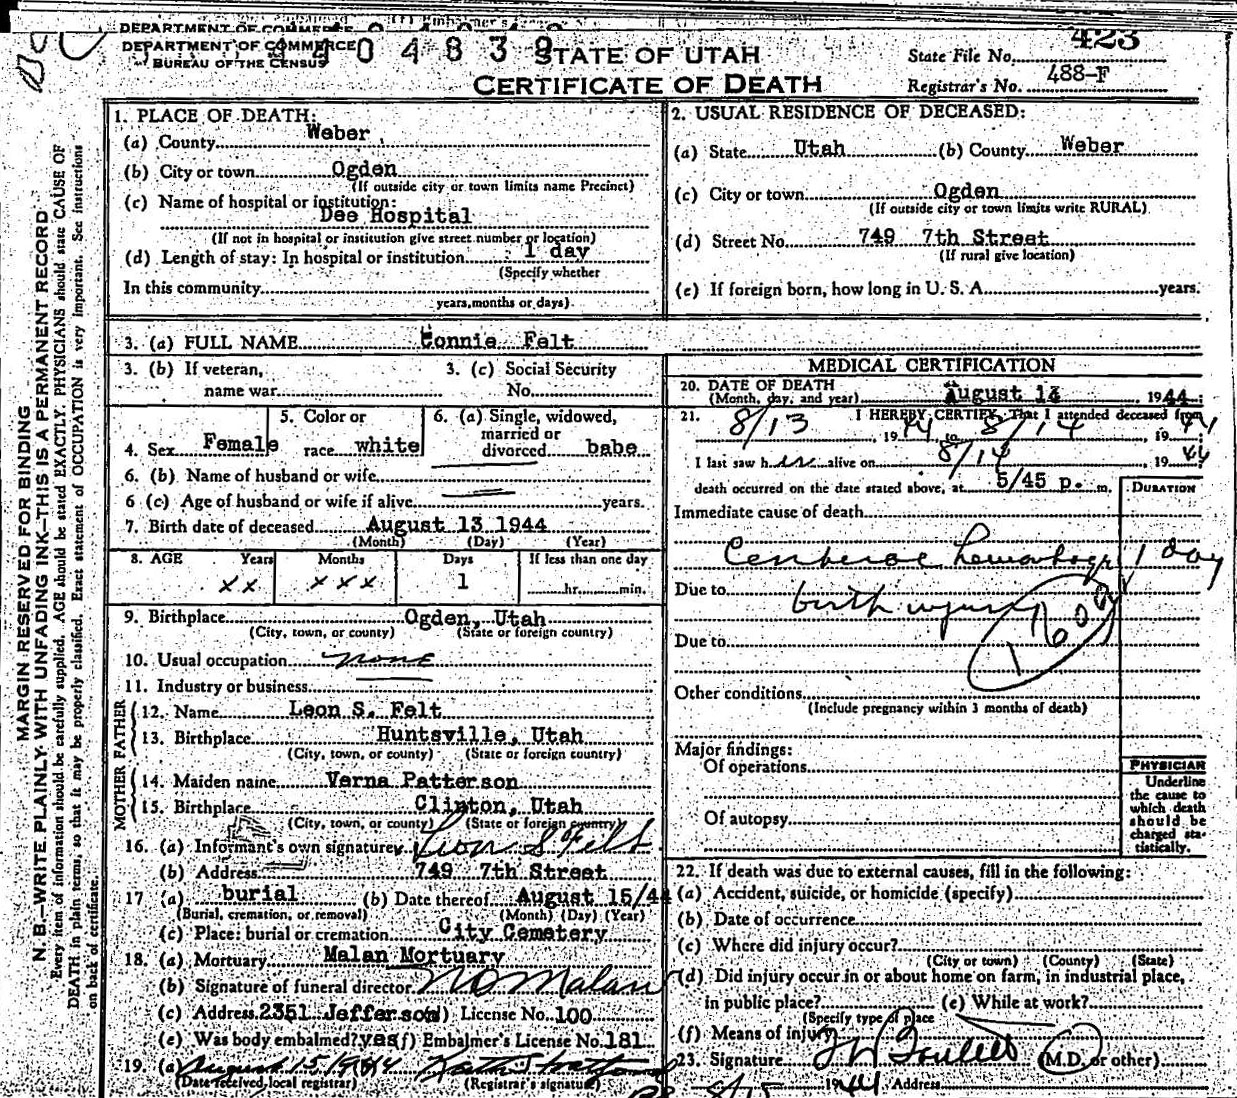 DEPARTMENT OF COMMERCE
DEPARTMENT OF COMMERCE
BUREAU OF THE CENSUS
04839
STATE OF UTAH
CERTIFICATE OF DEATH
State File No. 423
Registrar's No. 488-F
MARGIN RESERVED FOR BINDING
N. B.—WRITE PLAINLY WITH UNFADING INK—THIS IS A PERMANENT RECORD
Every item of information should be carefully supplied. AGE should be stated EXACTLY. PHYSICIANS should state CAUSE OF
DEATH in plain terms, so that it may be properly classified. Exact statement of OCCUPATION is very important. See instructions
on back of certificate.
1. PLACE OF DEATH:
(a) County Weber
(b) City or town Ogden
(If outside city or town limits name Precinct)
(c) Name of hospital or institution:
Dee Hospital
(If not in hospital or institution give street number or location)
(d) Length of stay: In hospital or institution 1 day
(Specify whether
In this community
years, months or days)
2. USUAL RESIDENCE OF DECEASED:
(a) State Utah (b) County Weber
(c) City or town Ogden
(If outside city or town limits write RURAL)
(d) Street No. 749 7th Street
(If rural give location)
(e) If foreign born, how long in U. S. A. years.
3. (a) FULL NAME Connie Felt
3. (b) If veteran,
name war
3. (c) Social Security
No.
4. Sex Female
5. Color or
race white
6. (a) Single, widowed,
married or
divorced babe
6. (b) Name of husband or wife
6 (c) Age of husband or wife if alive years.
7. Birth date of deceased August 13 1944
(Month) (Day) (Year)
8. AGE Years Months Days If less than one day
xx xxx 1 hr. min.
9. Birthplace Ogden, Utah
(City, town, or county) (State or foreign country)
10. Usual occupation none
11. Industry or business
FATHER
12. Name Leon S. Felt
13. Birthplace Huntsville, Utah
(City, town, or county) (State or foreign country)
MOTHER
14. Maiden name Verna Patterson
15. Birthplace Clinton, Utah
(City, town, or county) (State or foreign country)
16. (a) Informant's own signature Leon S Felt
(b) Address 749 7th Street
17 (a) burial (b) Date thereof August 15/44
(Burial, cremation, or removal) (Month) (Day) (Year)
(c) Place: burial or cremation City Cemetery
18. (a) Mortuary Malan Mortuary
(b) Signature of funeral director Malan
(c) Address 2351 Jefferson) License No. 100
(e) Was body embalmed? yes (f) Embalmer's License No. 181
19. (a) August 15/1944
(Date received, local registrar) (Registrar's signature)
MEDICAL CERTIFICATION
20. DATE OF DEATH
(Month, day, and year) August 14 1944
21. I HEREBY CERTIFY That I attended deceased from
8/13, 1944 to 8/14, 1944
I last saw her alive on 8/14 1944
death occurred on the date stated above, at 5/45 p. m.
DURATION
Immediate cause of death
1 day
Due to birth injury
160a
Due to
Other conditions
(Include pregnancy within 3 months of death)
Major findings:
Of operations
Of autopsy
PHYSICIAN
Underline
the cause to
which death
should be
charged sta-
tistically.
22. If death was due to external causes, fill in the following:
(a) Accident, suicide, or homicide (specify)
(b) Date of occurrence
(c) Where did injury occur?
(City or town) (County) (State)
(d) Did injury occur in or about home on farm, in industrial place,
in public place? (e) While at work?
(Specify type of place
(f) Means of injury
23. Signature (M.D. or other)
8/15 1944 Address